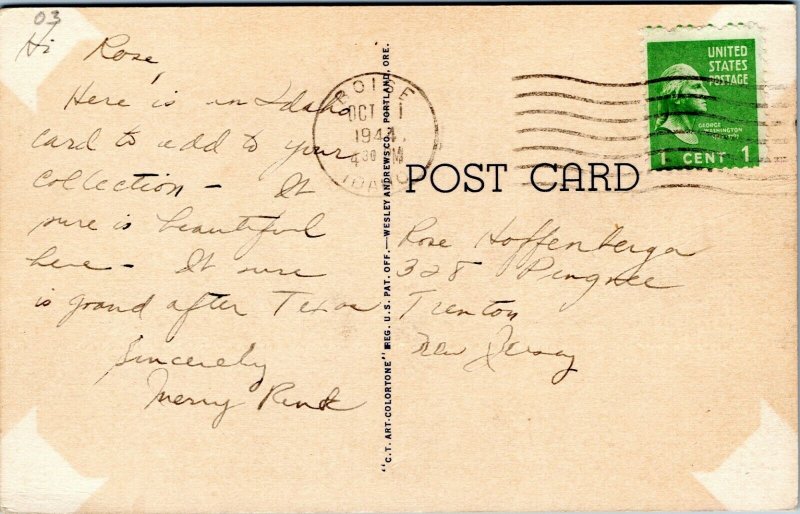 03
Hi Rose,
Here is an Idaho
card to add to your
collection - It
sure is beautiful
here - It sure
is grand after Texas
Sincerely
Merry
BOISE
OCT 1
1944
4 30 M
IDAHO
UNITED
STATES
POSTAGE
GEORGE
WASHINGTON
1 CENT 1
POST CARD
Rose Hoffenberger
328 Pingree
Trenton
New Jersey
"C.T. ART-COLORTONE" REG. U.S. PAT. OFF.—WESLEY ANDREWS CO., PORTLAND, ORE.